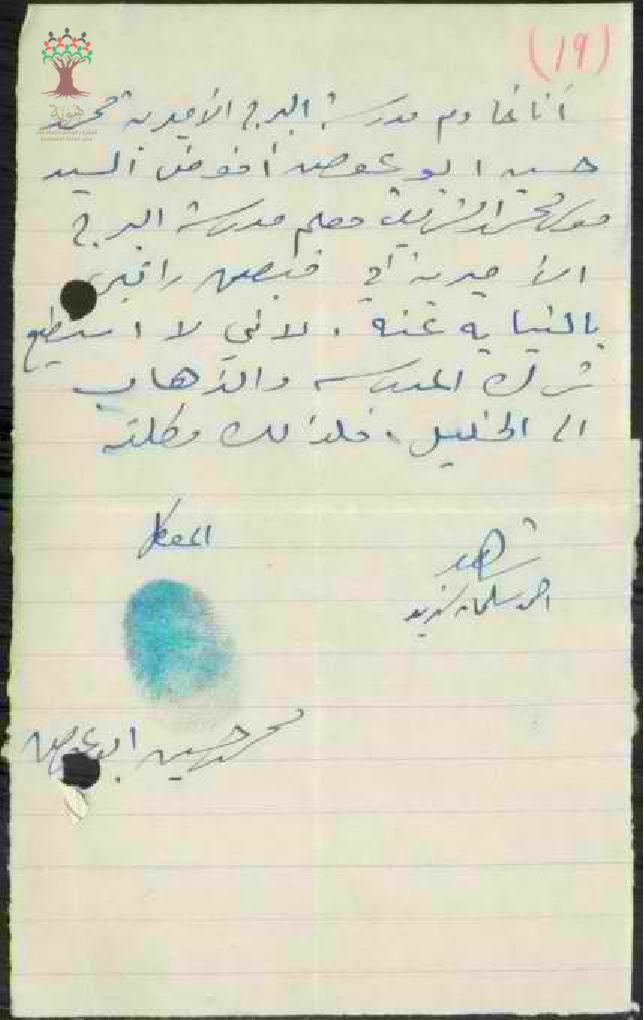 (١٩)
هوية
أنا خادم مدرسة البرج الأميرية محمد
حسين ابو عوض أفوض السيد
محمد الشريف معلم مدرسة البرج
الأميرية في قبض راتبي
بالنيابة عنه، لاني لا استطيع
ترك المدرسة والذهاب
الى الخليل، فلذلك وكلته
الموكل
شهد
احمد سلمان
محمد حسين ابو عوض